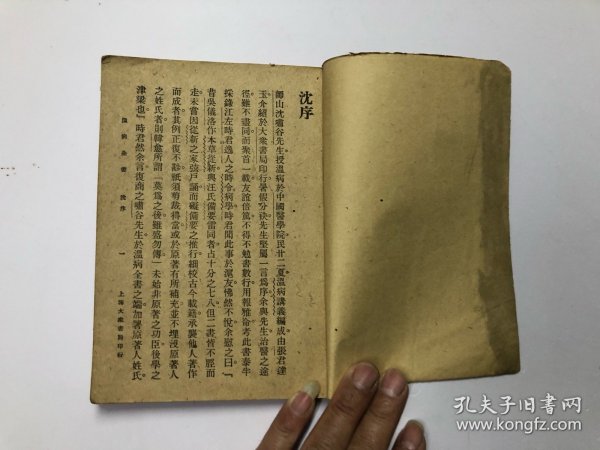 沈序
師山沈嘯谷先生授溫病於中國醫學院民廿二夏溫病講義編成由張君達
玉介紹於大衆書局印行暑假分袂先生堅屬一言爲序余與先生治醫之途
徑雖不盡同而衆首一載友誼倍篤不得不勉書數行用報雅命考此書泰半
採錄江左時君逸人之時令病學時君聞此事於滬友怫然不悅余慰之曰『
昔吳儀洛作本草從新與汪氏備要雷同者占十分之七八但二書皆不脛而
走未嘗因從新之家弦戶誦而礙備要之推行細校古今載籍承襲他人著作
而成者其例正復不尠祇須剪裁得當或於原著有所補充並不埋沒原著人
之姓氏者則韓愈所謂『莫爲之後雖盛勿傳』未始非原著之功臣後學之
津梁也』時君然余言復商之嘯谷先生於溫病全書之端加署原著人姓氏
沈序
一
上海大衆書局印行
孔夫子旧书网
www.kongfz.com